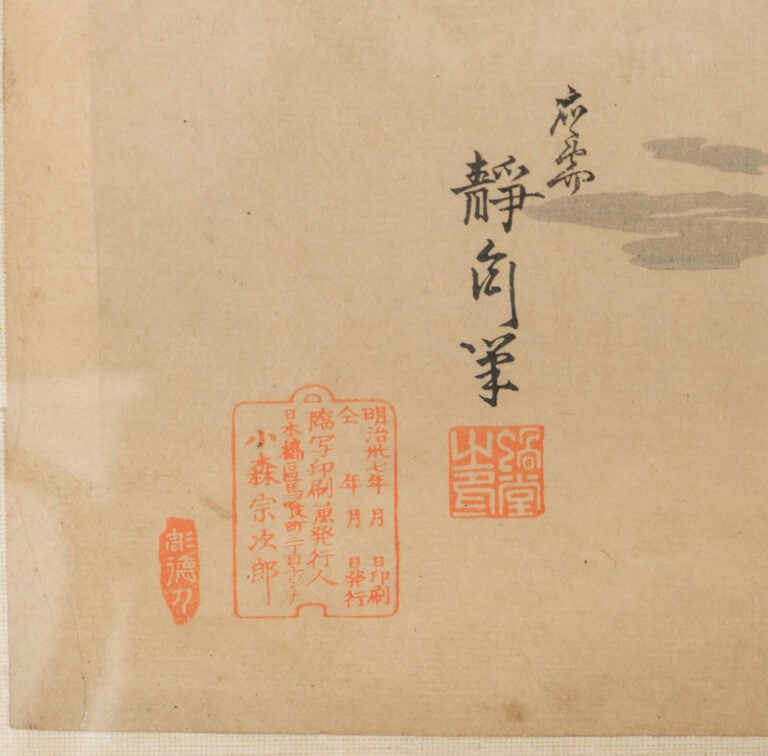 応需
靜向筆
明治卅七年 月 日印刷
仝 年 月 日発行
臨写印刷兼発行人
日本橋區馬喰町二丁目
小森宗次郎
彫徳刀